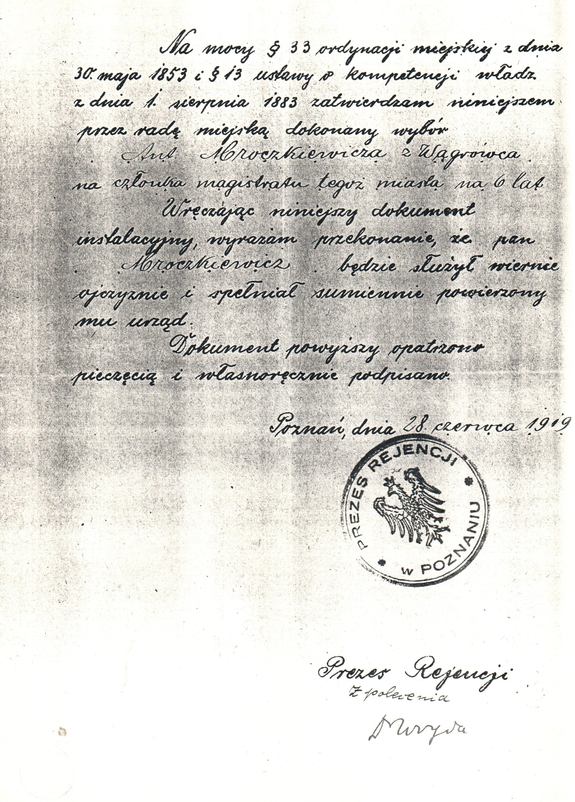 Na mocy § 33 ordynacji miejskiej z dnia
30. maja 1853 i § 13 ustawy o kompetencji władz
z dnia 1. sierpnia 1883 zatwierdzam niniejszem
przez radę miejską dokonany wybór
Ant Mroczkiewicza z Wągrówca
na członka magistratu tegoż miasta na 6 lat
Wręczając niniejszy dokument
instalacyjny, wyrażam przekonanie, że pan
Mroczkiewicz będzie służył wiernie
ojczyznie i spełniał sumiennie powierzony
mu urząd.
Dokument powyższy opatrzono
pieczęcią i własnoręcznie podpisano.
Poznań, dnia 28. czerwca 1919
PREZES REJENCJI
w POZNANIU
Prezes Rejencji
Z polecenia